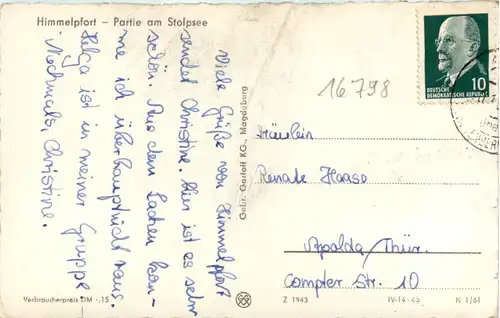 Himmelpfort – Partie am Stolpsee
Viele Grüße von Himmelpfort
sendet Christine. Hier ist es sehr
schön. Aus dem Lachen kom-
me ich überhaupt nicht raus.
Helga ist in meiner Gruppe
Nochmals, Christine.
Verbraucherpreis DM -.15
Gebr. Garloff KG., Magdeburg
16798
DEUTSCHE
DEMOKRATISCHE REPUBLIK
10
Fräulein
Renate Haase
Apolda/Thür.
Compter Str. 10
Z 1943
IV-14-45
N 1/61